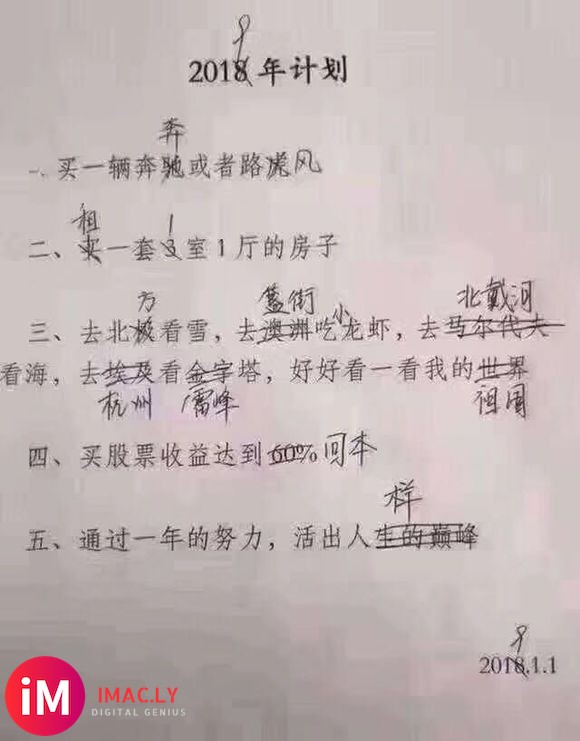 9
2018年计划
奔
一、买一辆奔驰或者路虎风
租 1
二、买一套3室1厅的房子
方 簋街 小 北戴河
三、去北极看雪，去澳洲吃龙虾，去马尔代夫
看海，去埃及看金字塔，好好看一看我的世界
杭州 雷峰 祖国
四、买股票收益达到60%回本
样
五、通过一年的努力，活出人生的巅峰
9
2018.1.1
iM IMAC.LY
DIGITAL GENIUS